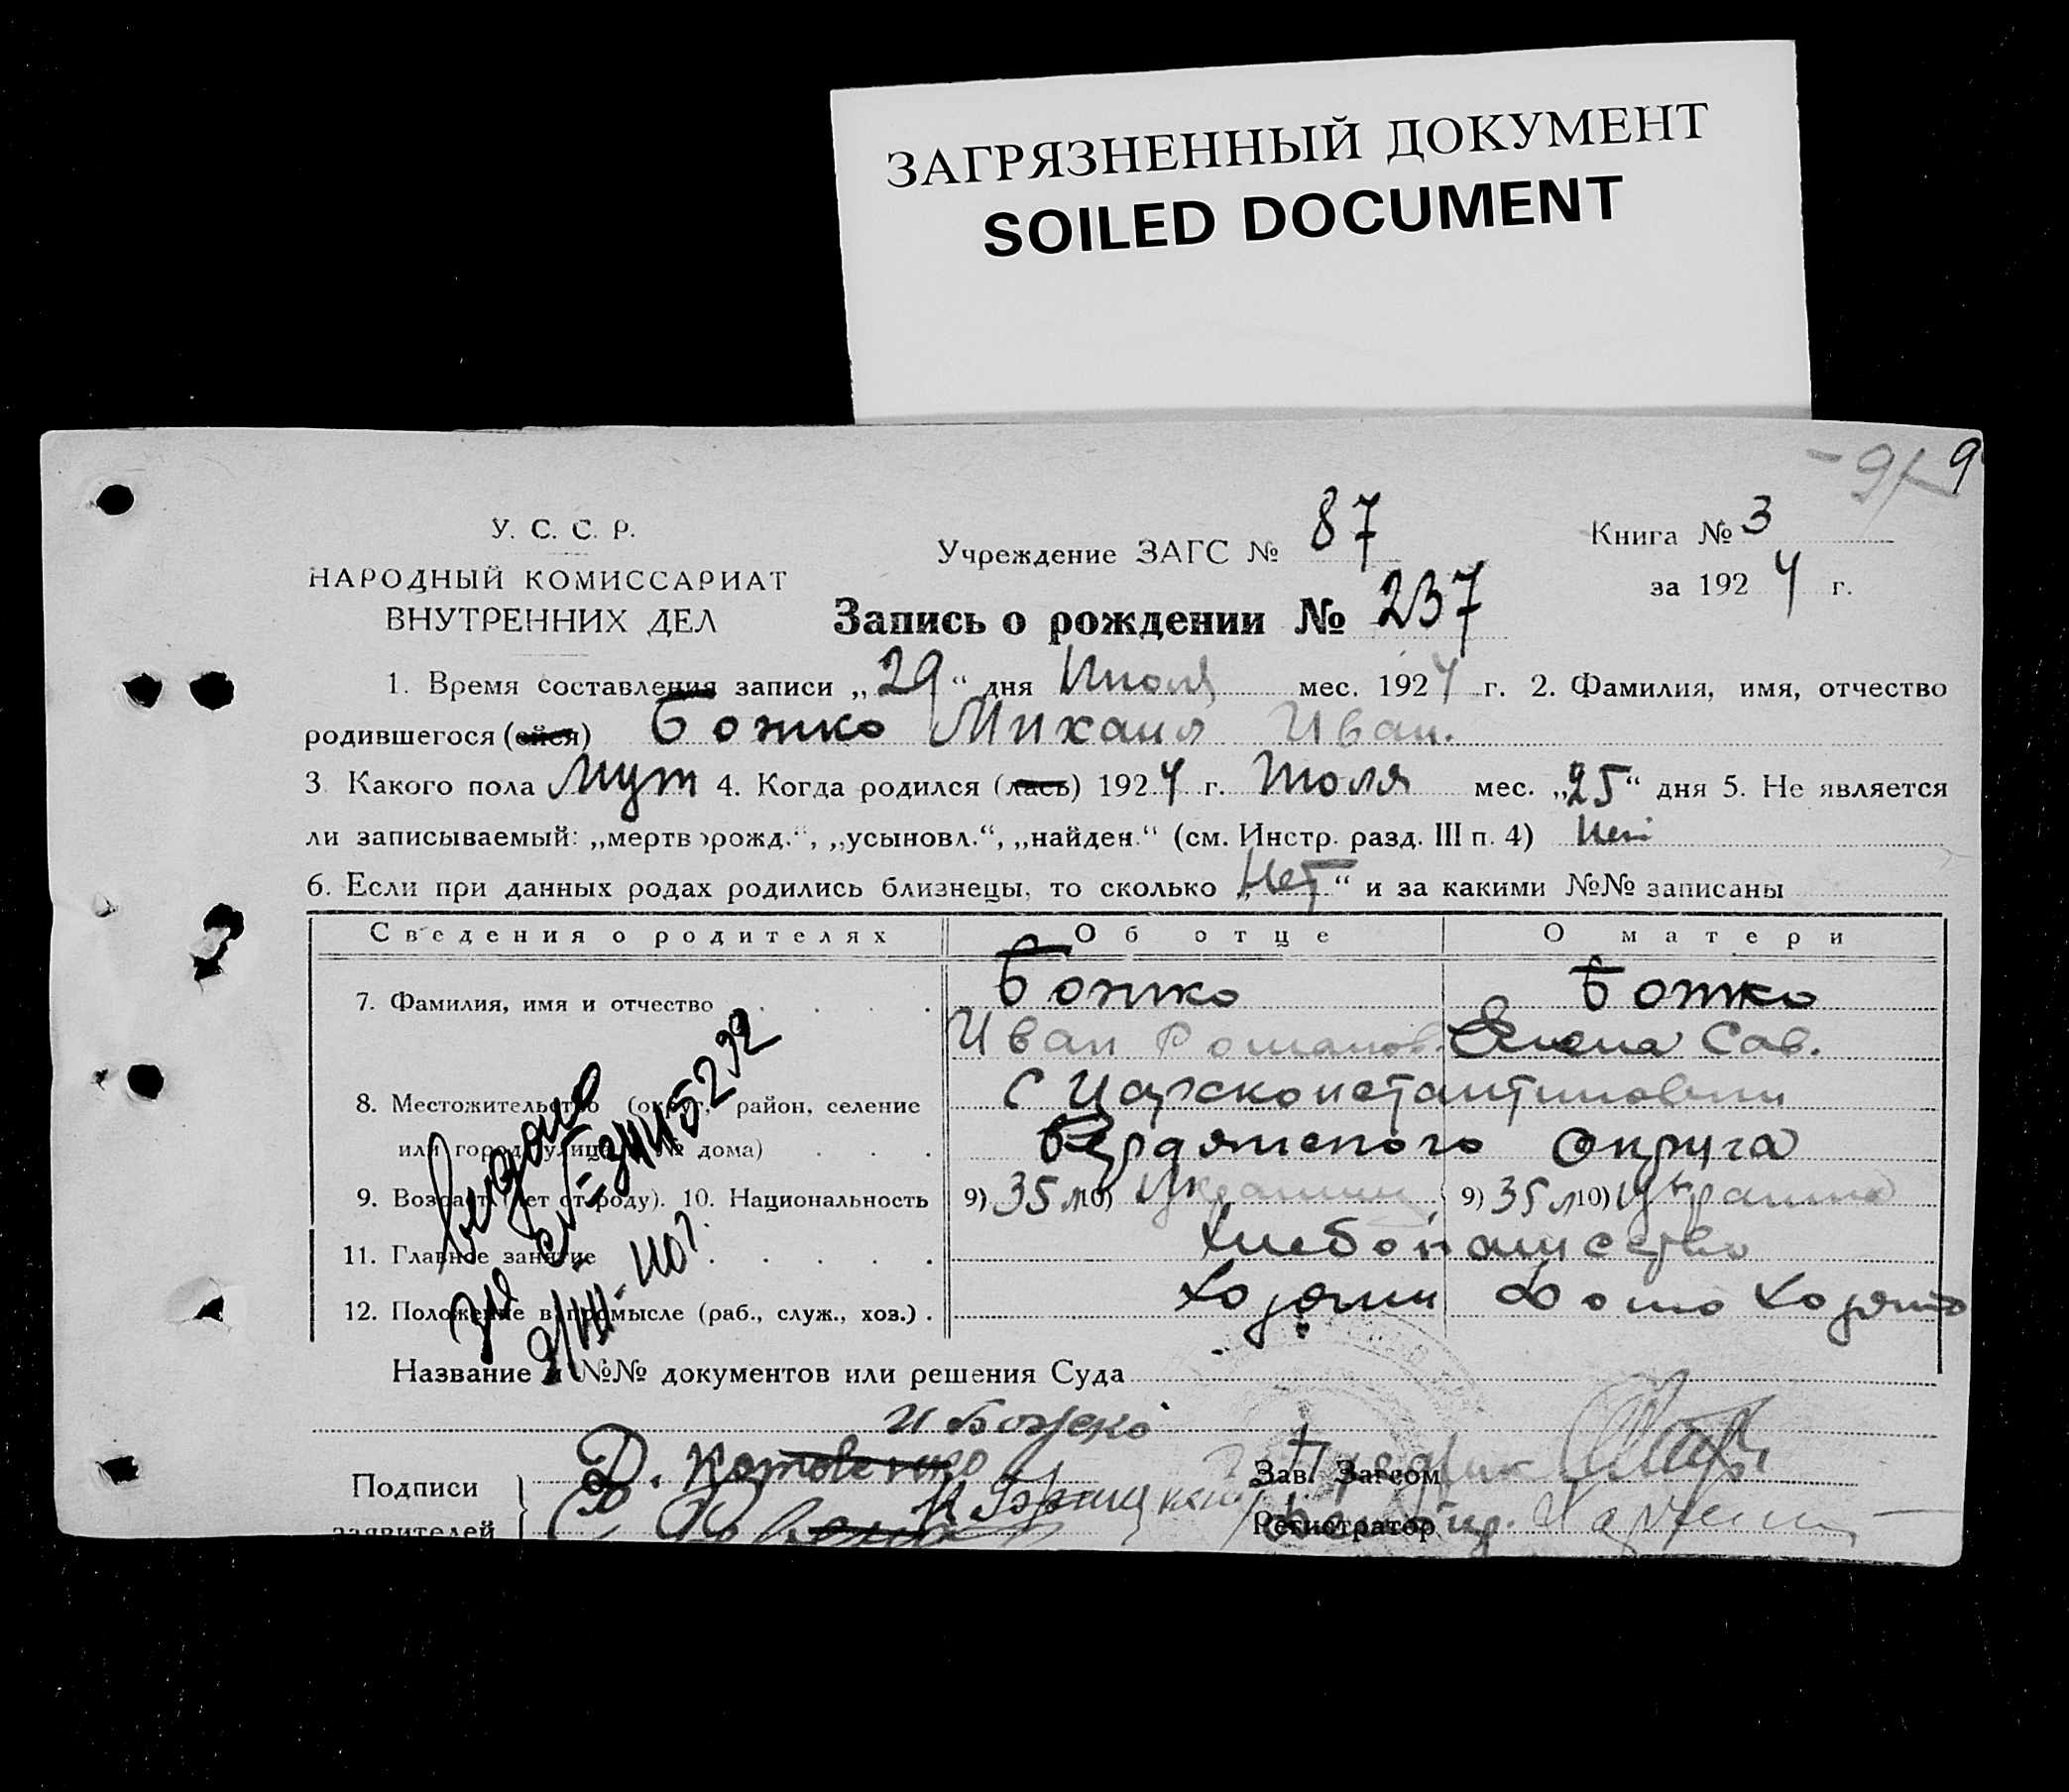 ЗАГРЯЗНЕННЫЙ ДОКУМЕНТ
SOILED DOCUMENT
9
У. С. С. Р.
НАРОДНЫЙ КОМИССАРИАТ
ВНУТРЕННИХ ДЕЛ
Учреждение ЗАГС № 87
Книга № 3
за 1924 г.
Запись о рождении № 237
1. Время составления записи „29“ дня Июля мес. 1924 г. 2. Фамилия, имя, отчество
родившегося (ейся) Божко Михаил Иван.
3. Какого пола Муж 4. Когда родился (лась) 1924 г. Июля мес. „25“ дня 5. Не является
ли записываемый: „мертворожд.“, „усыновл.“, „найден.“ (см. Инстр. разд. III п. 4) Нет
6. Если при данных родах родились близнецы, то сколько „Нет“ и за какими №№ записаны
Сведения о родителях Об отце О матери
7. Фамилия, имя и отчество Божко Божко
Иван Романов. Елена Сав.
8. Местожительство (округ, район, селение С Царсконстантиновки
или город, улица, № дома) Бердянского Округа
9. Возраст (лет от роду). 10. Национальность 9) 35 л 10) Украинец 9) 35 л 10) Украинка
11. Главное занятие Хлебопашество
12. Положение в промысле (раб., служ., хоз.) Хозяин Домо Хозяйка
Название и №№ документов или решения Суда
И Божко
Подписи
заявителей
Зав. Загсом
Регистратор